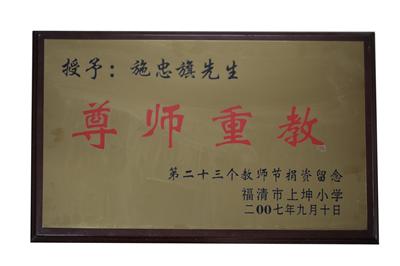 授予：施忠旗先生
尊师重教
第二十三个教师节捐资留念
福清市上坤小学
二00七年九月十日